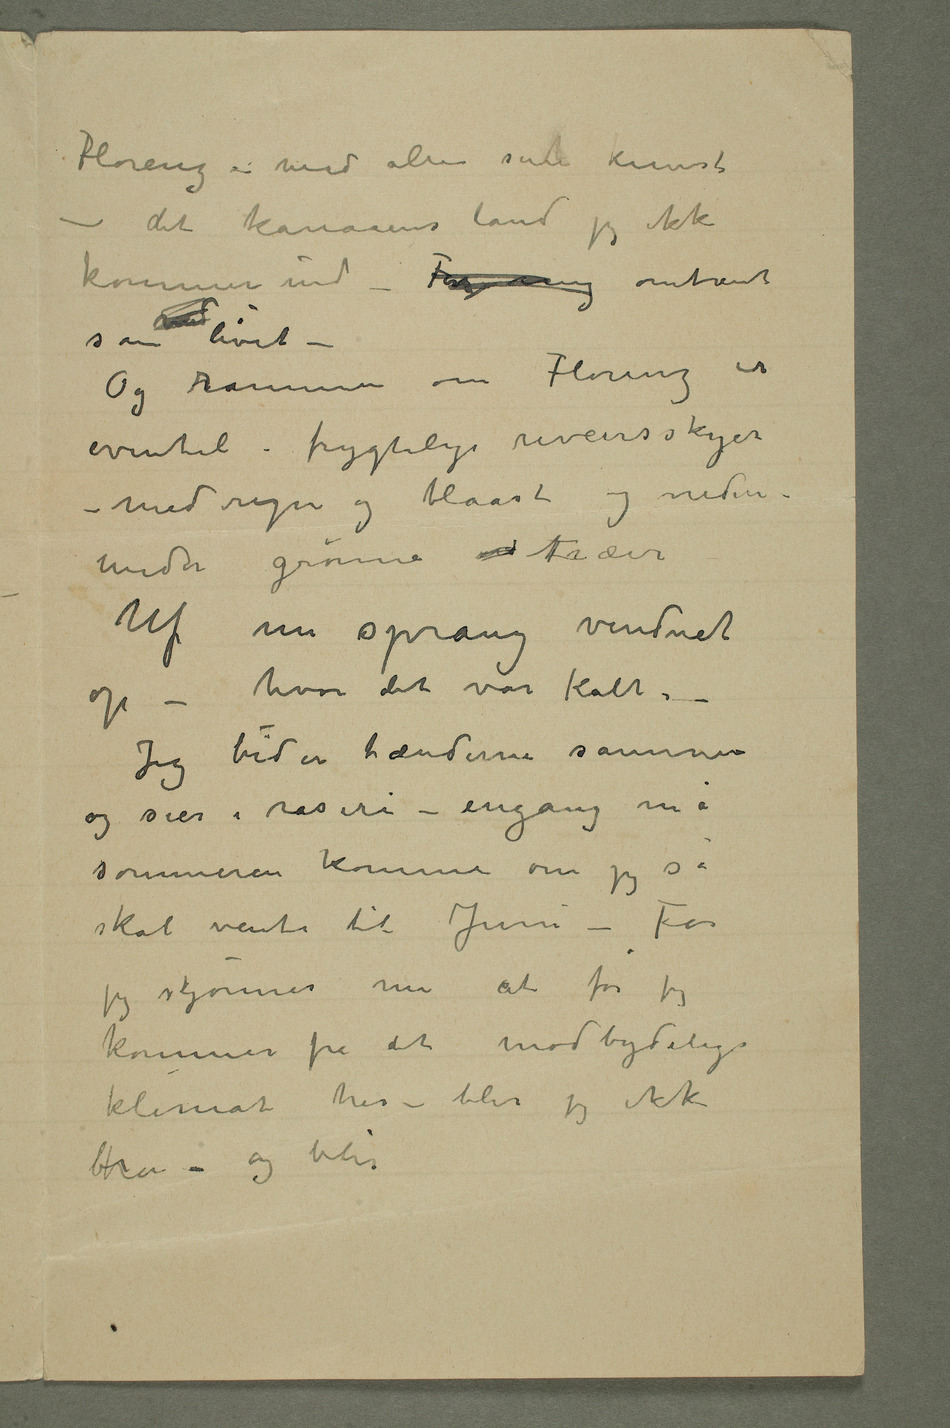 Florenz – med all sin kunst
– det kanaaens land jeg ikke
kommer ind – omtrent
som livet –
Og rammen om Florenz er
eventel – frygtelige uveirsskyer
– med regn og blaast og neden-
under grønne træer
Uf nu sprang vinduet
op – hvor det var kalt. –
Jeg bider tænderne sammen
og sier i raseri – engang må
sommeren komme om jeg så
skal vente til Juni – For
jeg skjønner nu at før jeg
kommer fra det modbydelige
klimat her – blir jeg ikke
bra – og blir